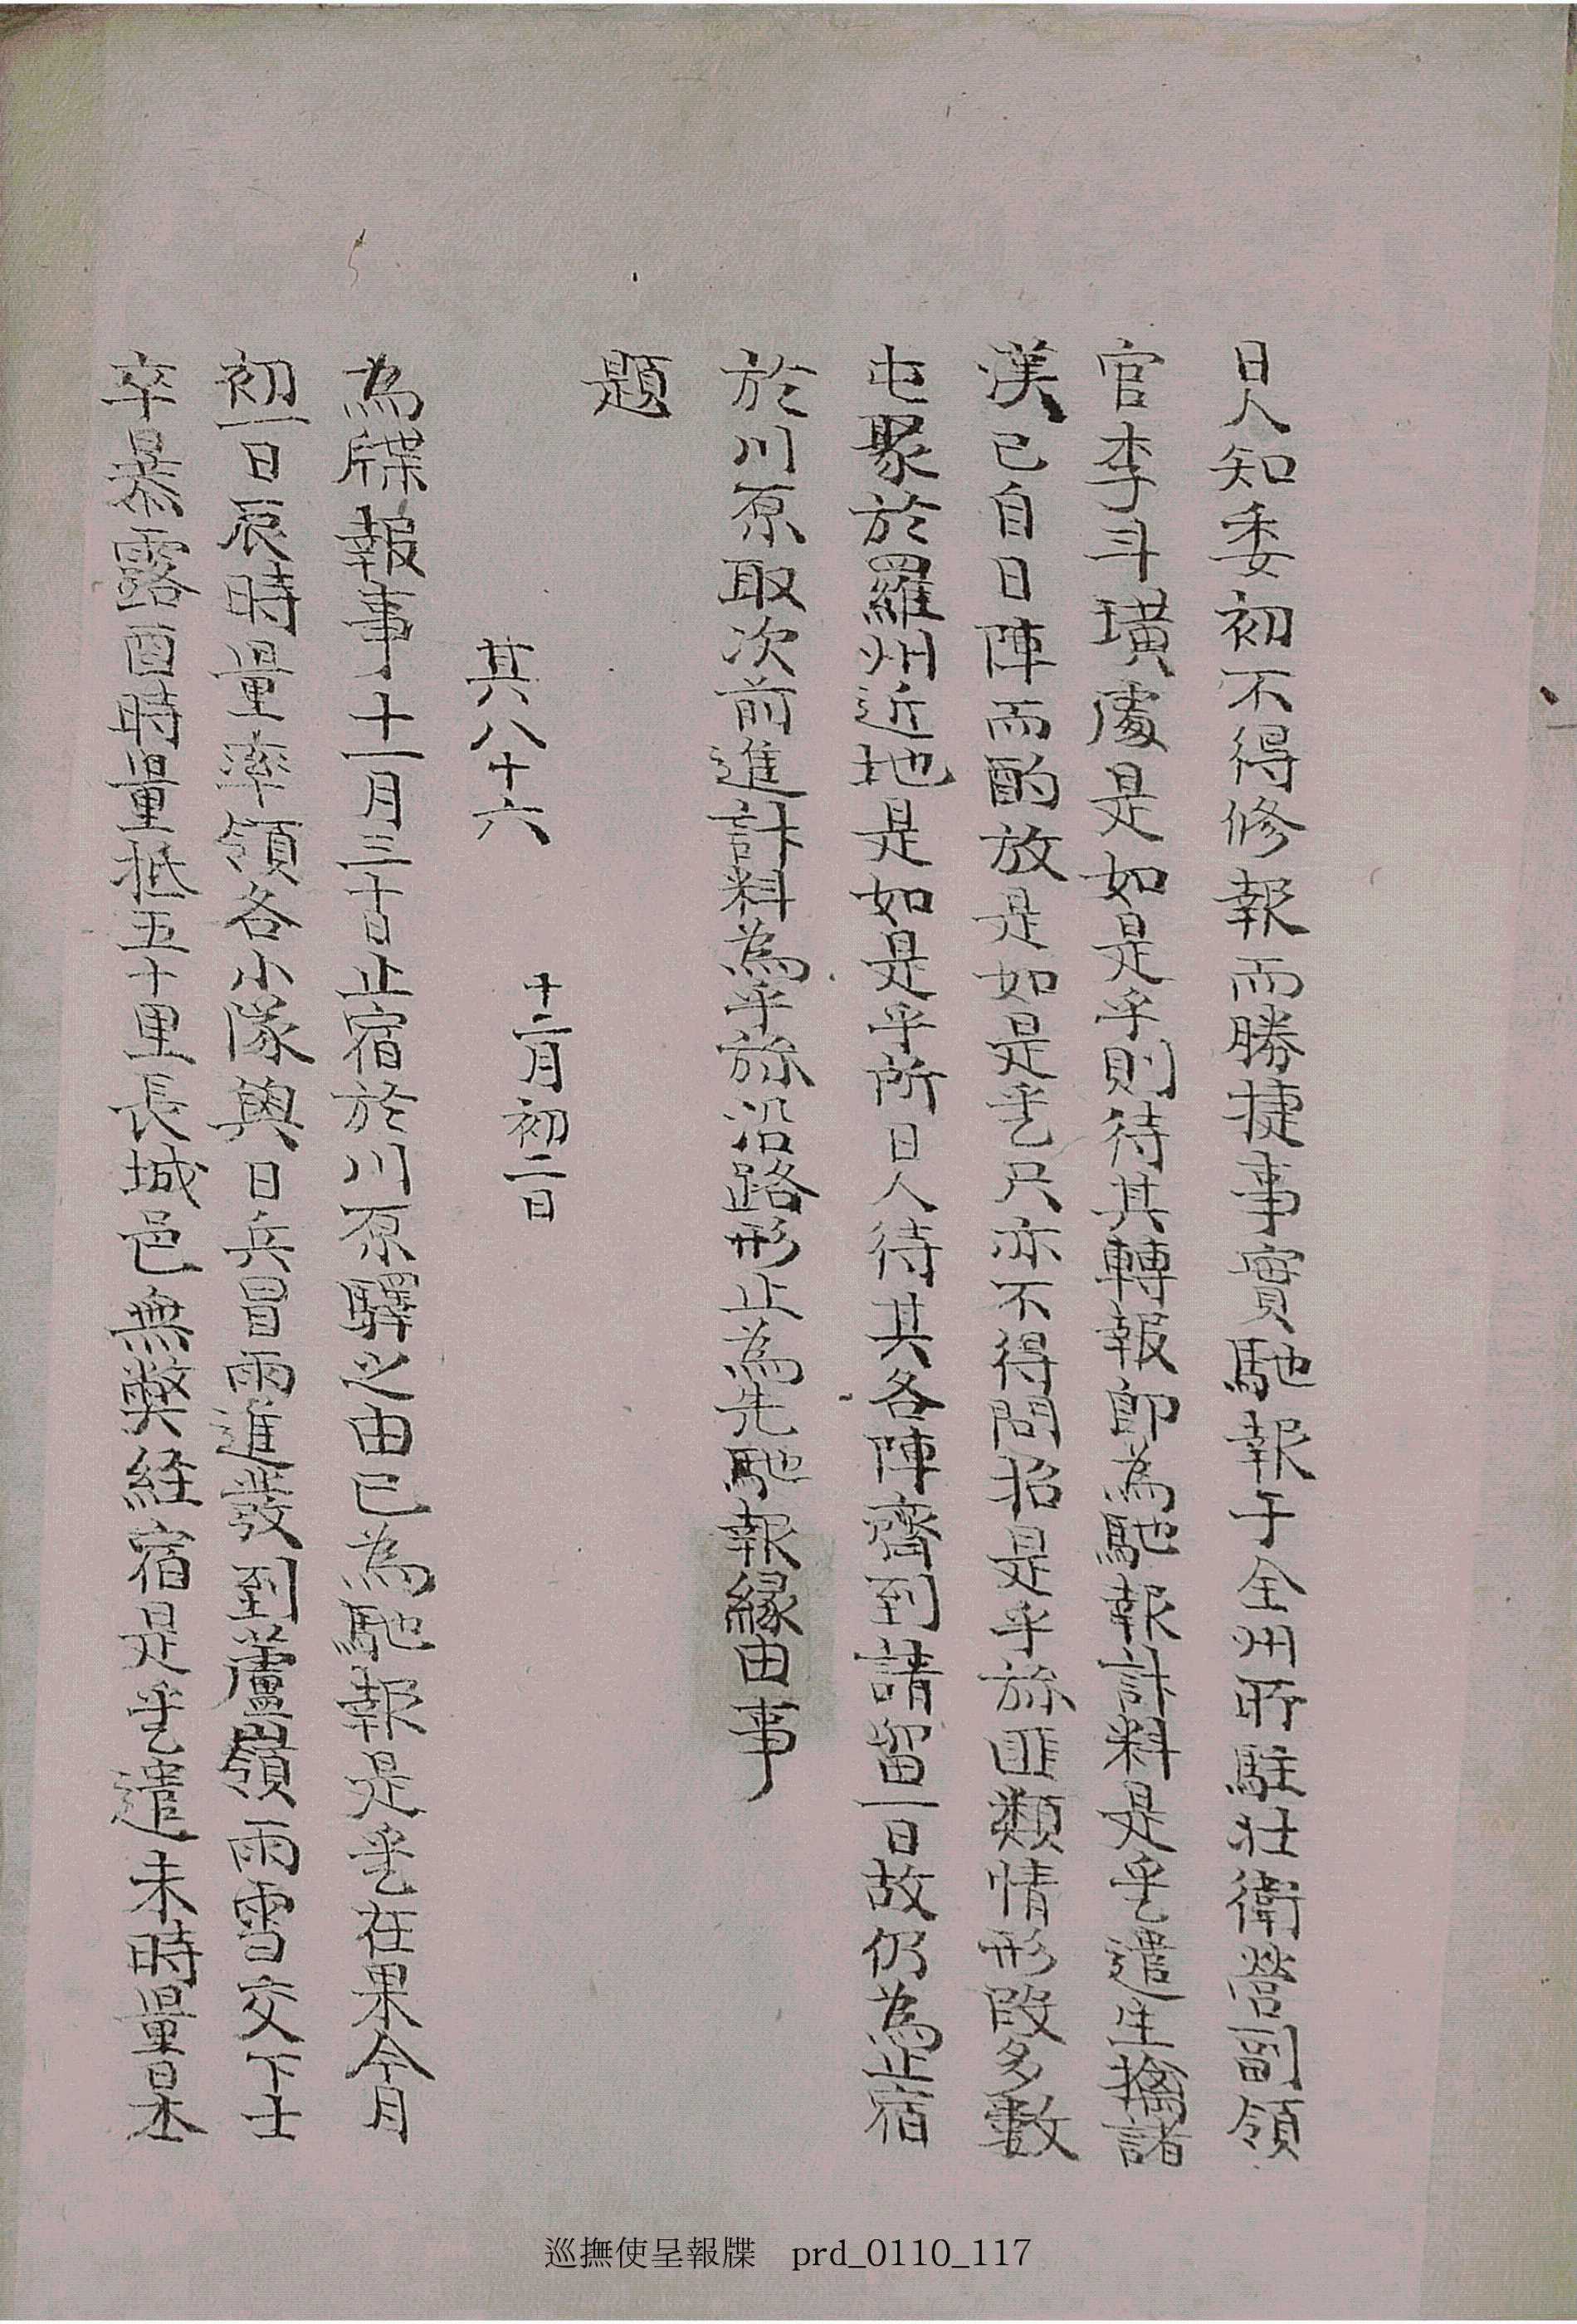 日人知委初不得修報而勝捷事實馳報于全州所駐壯衛營副領
官李斗璜處是如是乎則待其轉報卽爲馳報計料是乎乀遣生擒諸
漢已自日陣而酌放是如是乎乀尺亦不得問招是乎旀匪類情形段多數
屯聚於羅州近地是如是乎所日人待其各陣齊到請留一日故仍爲止宿
於川原取次前進計料爲乎旀沿路形止爲先馳報緣由事
題
其八十六 十二月初二日
爲牒報事十一月三十日止宿於川原驛之由已爲馳報是乎乀在果今月
初一日辰時量率領各小隊與日兵冒雨進發到蘆嶺雨雪交下士
卒暴露酉時量抵五十里長城邑無弊経宿是乎乀遣未時量日本
巡撫使呈報牒 prd_0110_117